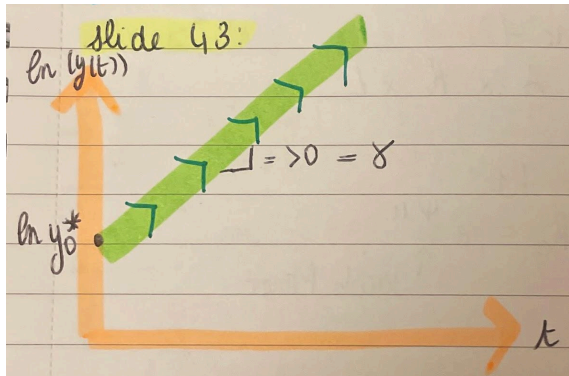 slide 43:
ln (y(t))
= >0 = γ
ln y₀*
t